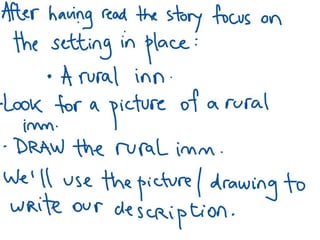 After having read the story focus on
the setting in place:
• A rural inn.
-Look for a picture of a rural
imm.
- DRAW the rural imm.
We'll use the picture/drawing to
write our description.